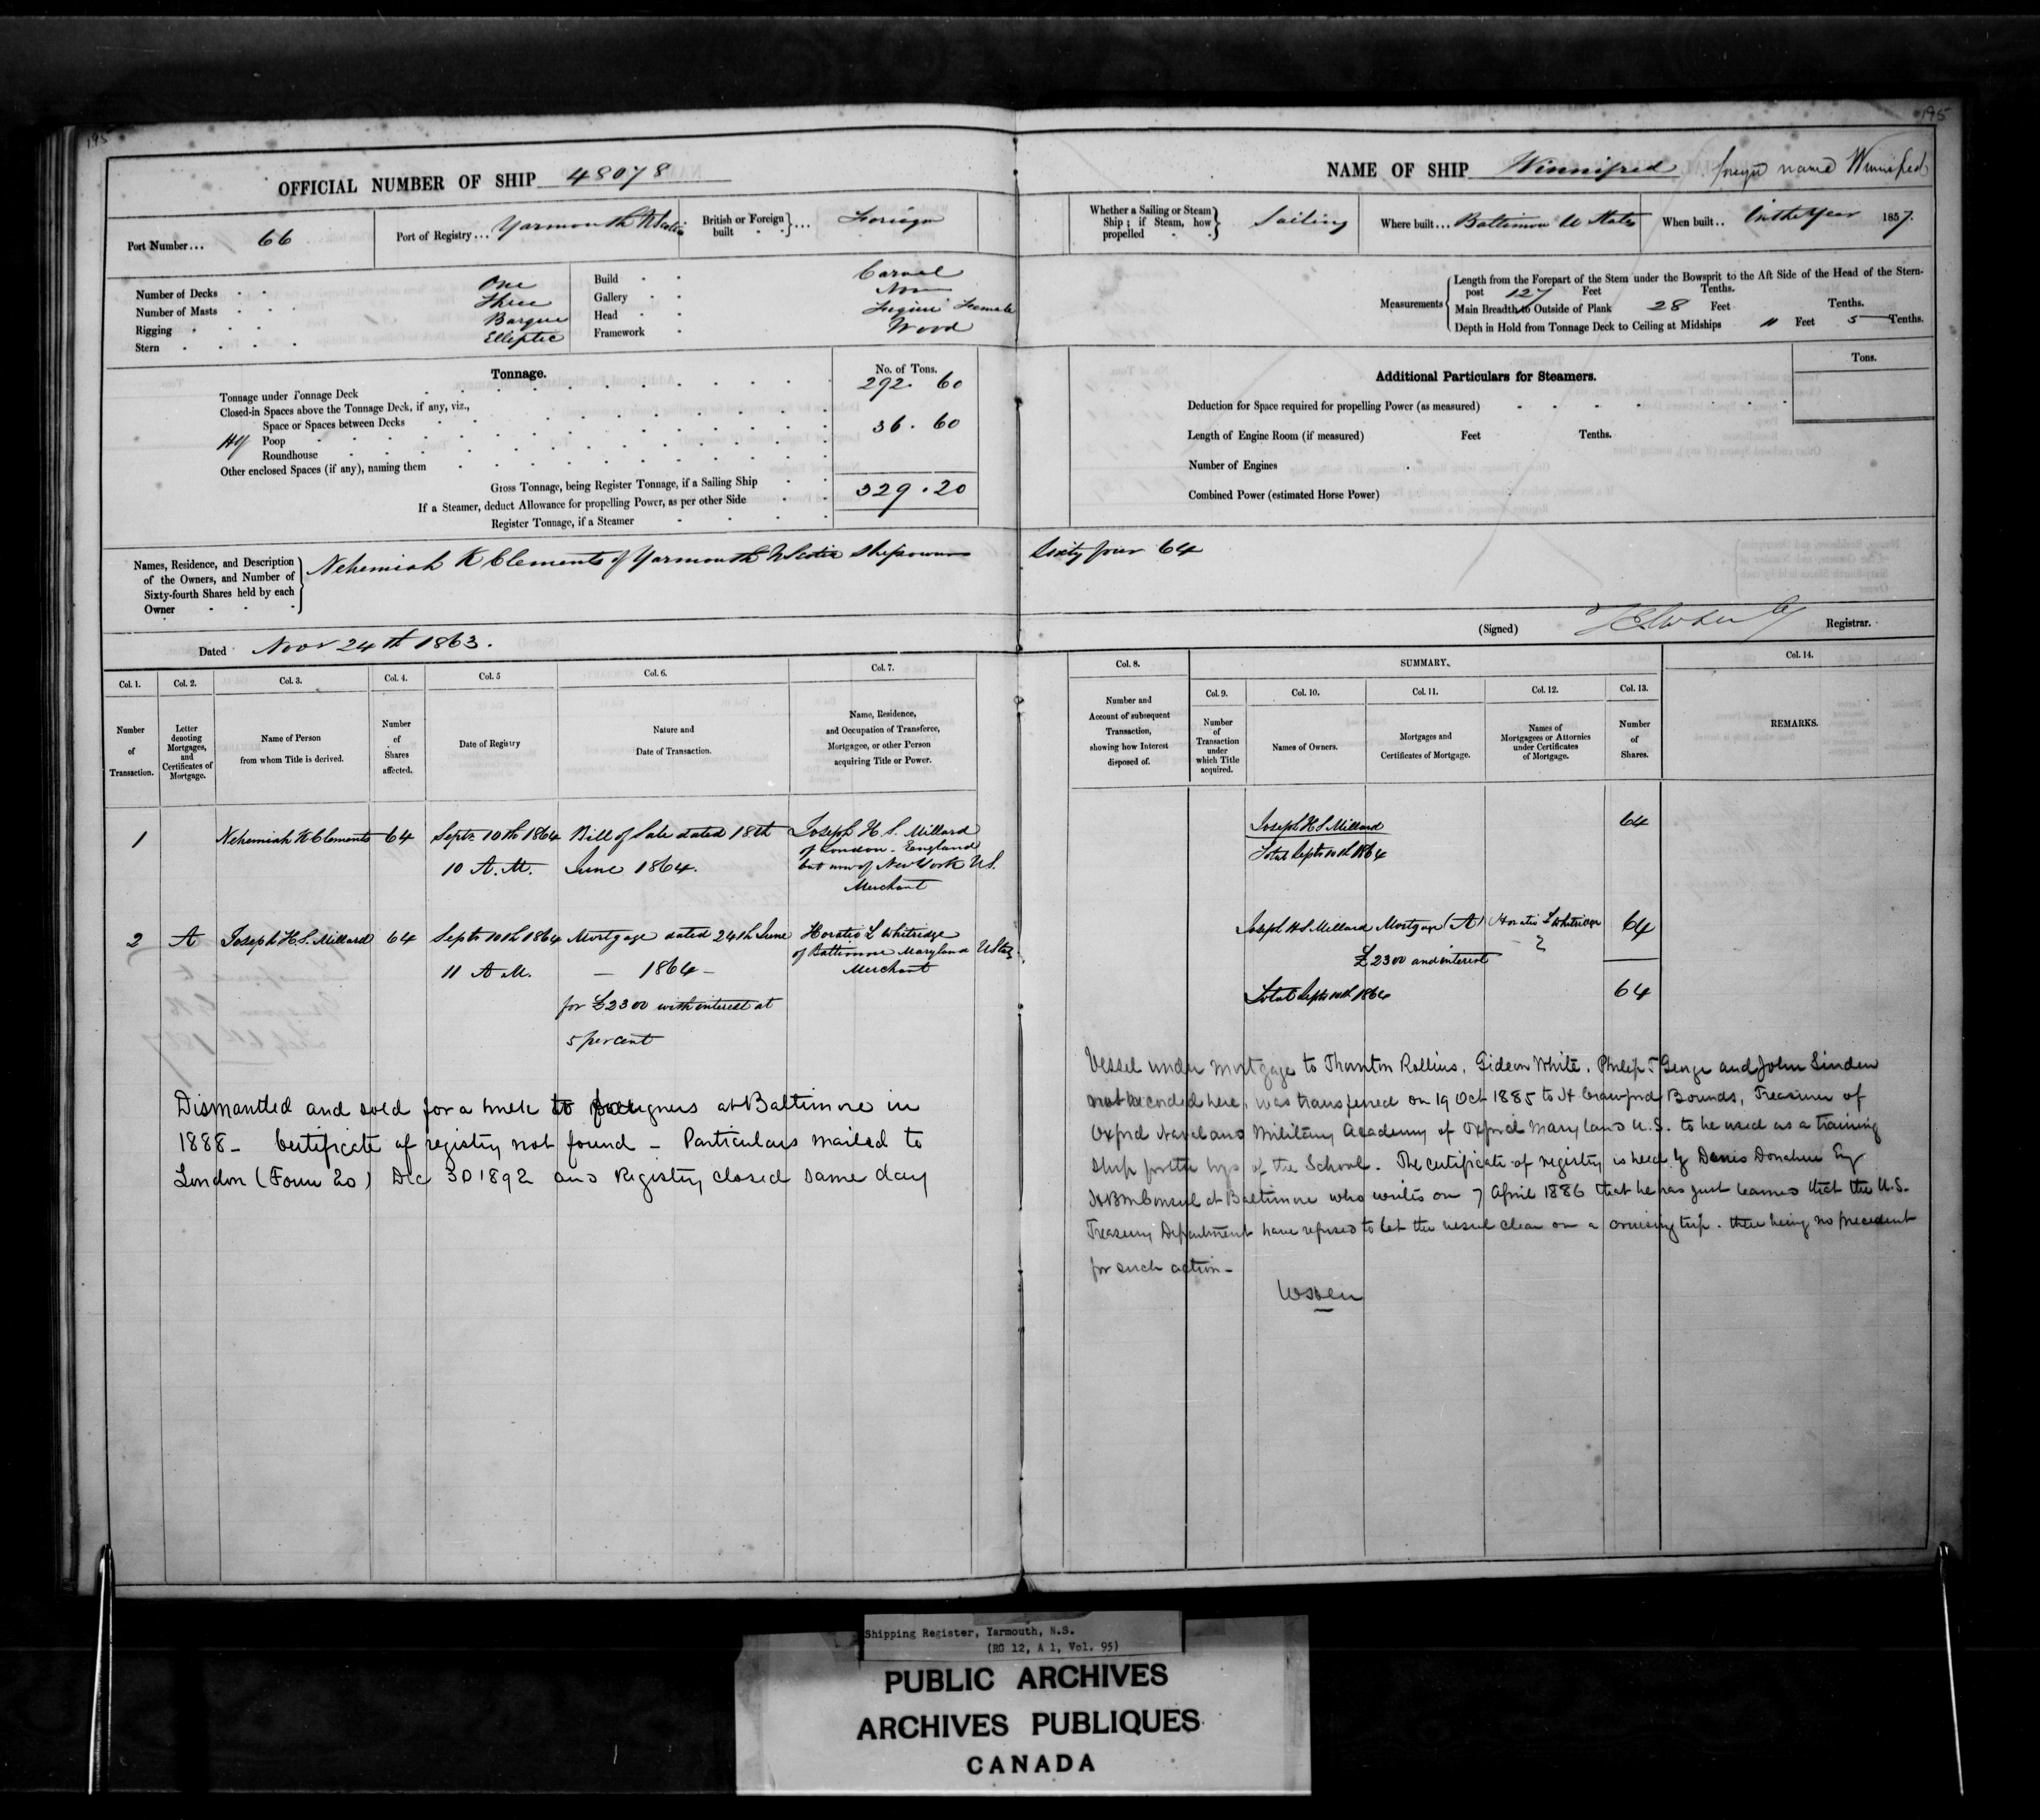 195
195
OFFICIAL NUMBER OF SHIP 48078
NAME OF SHIP Winnifred foreign name Winnifred
Port Number... 66
Port of Registry... Yarmouth N Scotia
British or Foreign built } ... Foreign
Whether a Sailing or Steam Ship; if Steam, how propelled } Sailing
Where built... Baltimore U States
When built.. In the Year 1857.
Number of Decks One
Number of Masts Three
Rigging Barque
Stern Elliptic
Build Carvel
Gallery None
Head Figure Female
Framework Wood
Measurements
Length from the Forepart of the Stem under the Bowsprit to the Aft Side of the Head of the Stern-
post 127 Feet Tenths.
Main Breadth to Outside of Plank 28 Feet Tenths.
Depth in Hold from Tonnage Deck to Ceiling at Midships 11 Feet 5 Tenths.
Tonnage.
No. of Tons.
Tonnage under Tonnage Deck 292. 60
Closed-in Spaces above the Tonnage Deck, if any, viz.,
Space or Spaces between Decks
Poop 36. 60
Roundhouse
Other enclosed Spaces (if any), naming them
Gross Tonnage, being Register Tonnage, if a Sailing Ship 329.20
If a Steamer, deduct Allowance for propelling Power, as per other Side
Register Tonnage, if a Steamer
Additional Particulars for Steamers.
Tons.
Deduction for Space required for propelling Power (as measured)
Length of Engine Room (if measured) Feet Tenths.
Number of Engines
Combined Power (estimated Horse Power)
Names, Residence, and Description
of the Owners, and Number of
Sixty-fourth Shares held by each
Owner
Nehemiah K Clements of Yarmouth N Scotia Shipowner Sixty four 64
Dated Nov 24th 1863.
(Signed) Registrar.
Col. 1. Col. 2. Col. 3. Col. 4. Col. 5 Col. 6. Col. 7.
Number of Transaction.
Letter denoting Mortgages, and Certificates of Mortgage.
Name of Person from whom Title is derived.
Number of Shares affected.
Date of Registry
Nature and Date of Transaction.
Name, Residence, and Occupation of Transferee, Mortgagee, or other Person acquiring Title or Power.
Col. 8. SUMMARY. Col. 14.
Col. 9. Col. 10. Col. 11. Col. 12. Col. 13.
Number and Account of subsequent Transaction, showing how Interest disposed of.
Number of Transaction under which Title acquired.
Names of Owners.
Mortgages and Certificates of Mortgage.
Names of Mortgagees or Attornies under Certificates of Mortgage.
Number of Shares.
REMARKS.
1 Nehemiah K Clements 64 Septr 10th 1864 Bill of Sale dated 18th Joseph H. S. Millard
of London - England
10 A.M. June 1864. but now of New York U S.
Merchant
Joseph H S Millard 64
Total Septr 10th 1864
2 A Joseph H. S. Millard 64 Septr 10th 1864 Mortgage dated 24th June Horatio L Whitridge
of Baltimore Maryland U States
11 A M. — 1864 — Merchant
for £2300 with interest at
5 per cent
Joseph H S Millard Mortgage (A) Horatio L Whitridge 64
£2300 and interest
Total Septr 10th 1864 64
Dismantled and sold for a hulk to foreigners at Baltimore in
1888 - Certificate of registry not found - Particulars mailed to
London (Form 20) Dec 30 1892 and Registry closed same day
Vessel under mortgage to Thornton Rollins, Gideon White, Philip T George and John Linden
not recorded here, was transferred on 19 Oct 1885 to H Crawford Bounds, Treasurer of
Oxford Naval and Military Academy of Oxford Maryland U.S. to be used as a training
ship for the boys of the School. The certificate of registry is held by Denis Donahue Esq
HBM Consul at Baltimore who writes on 7 April 1886 that he has just learned that the U.S.
Treasury Department have refused to let the vessel clear on a cruising trip. there being no precedent
for such action -
Shipping Register, Yarmouth, N.S.
(RG 12, A 1, Vol. 95)
PUBLIC ARCHIVES
ARCHIVES PUBLIQUES
CANADA